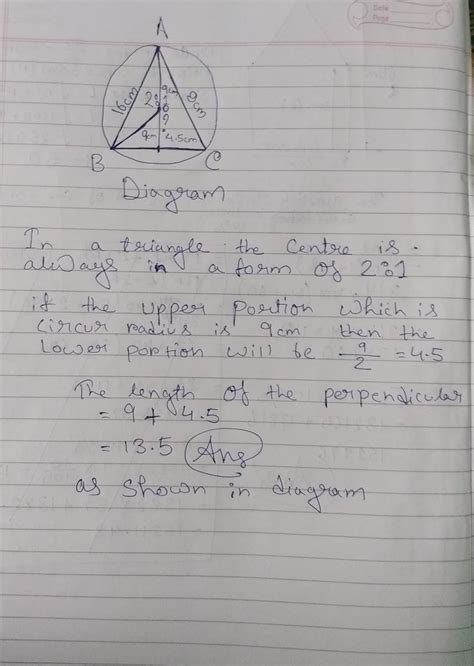 Date
Page
A
16cm
2
9cm
9cm
9cm
4.5cm
B
C
Diagram
In a triangle the centre is
always in a form of 2:1
if the upper portion which is
circur radius is 9cm then the
lower portion will be 9/2 = 4.5
The length of the perpendicular
= 9 + 4.5
= 13.5 Ans
as shown in diagram